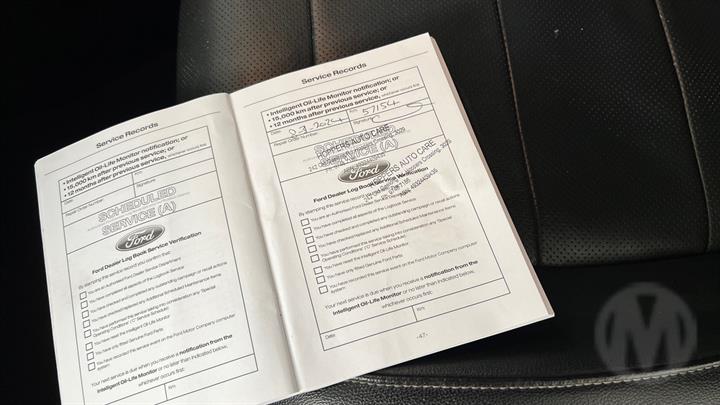 Service Records
• Intelligent Oil-Life Monitor notification; or
• 15,000 km after previous service; or
• 12 months after previous service, whichever occurs first.
Date
Signature
Repair Order Number:
SCHEDULED
SERVICE (A)
Ford
Ford Dealer Log Book Service Verification
By stamping this service record you confirm that:
You are an Authorised Ford Dealer Service Department
You have completed all aspects of the Logbook Service
You have checked and completed any outstanding campaign or recall actions
You have checked/replaced any Additional Scheduled Maintenance Items
You have performed this service taking into consideration any 'Special
Operating Conditions' ('C' Service Schedule)
You have reset the Intelligent Oil-Life Monitor
You have only fitted Genuine Ford Parts
You have recorded this service event on the Ford Motor Company computer
system
Your next service is due when you receive a notification from the
Intelligent Oil-Life Monitor or no later than indicated below,
whichever occurs first:
Date
Km
Service Records
• Intelligent Oil-Life Monitor notification; or
• 15,000 km after previous service; or
• 12 months after previous service, whichever occurs first.
Date
2024
57154
Signature
Repair Order Number:
SCHEDULED
SERVICE (A)
HOPPERS AUTO CARE
HOPPERS AUTO CARE
Hoppers Crossing, 3029
Ford
Ford Dealer Log Book Service Verification
By stamping this service record you confirm that:
You are an Authorised Ford Dealer Service Department
You have completed all aspects of the Logbook Service
You have checked and completed any outstanding campaign or recall actions
You have checked/replaced any Additional Scheduled Maintenance Items
You have performed this service taking into consideration any 'Special
Operating Conditions' ('C' Service Schedule)
You have reset the Intelligent Oil-Life Monitor
You have only fitted Genuine Ford Parts
You have recorded this service event on the Ford Motor Company computer
system
Your next service is due when you receive a notification from the
Intelligent Oil-Life Monitor or no later than indicated below,
whichever occurs first:
Date
Km
-47-
M